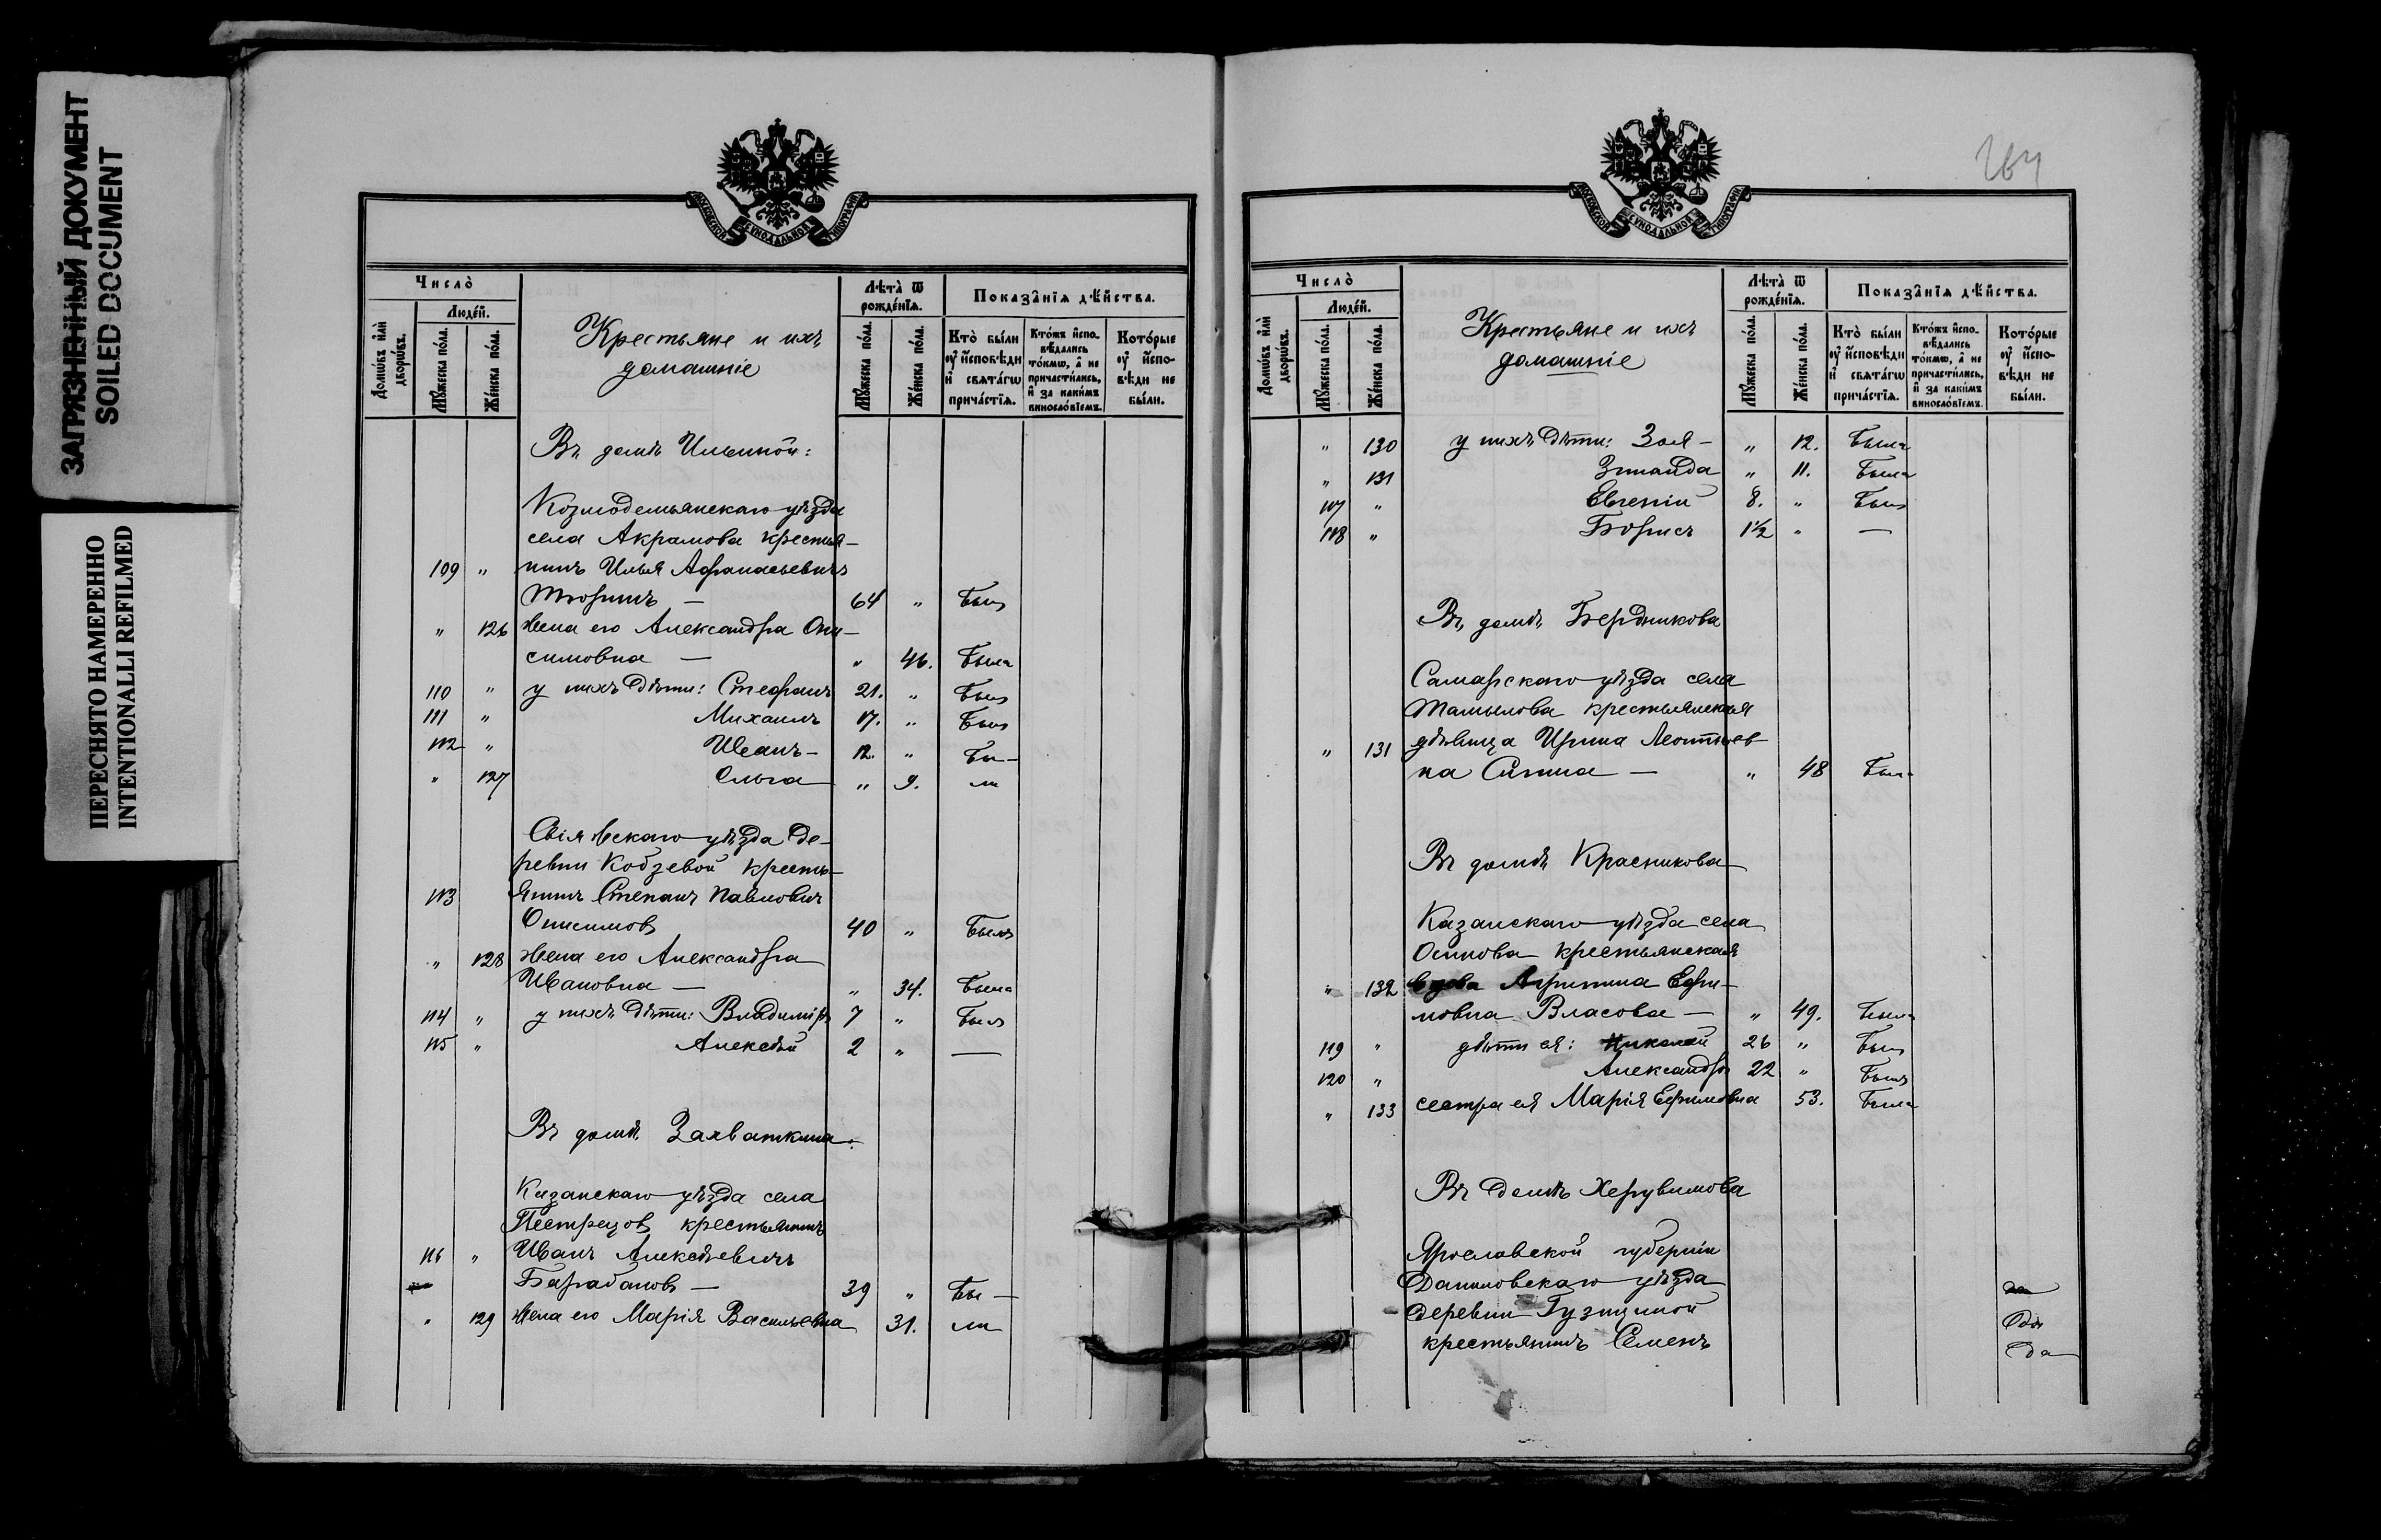 ЗАГРЯЗНЕННЫЙ ДОКУМЕНТ
SOILED DOCUMENT
ПЕРЕСНЯТО НАМЕРЕННО
INTENTIONALLI REFILMED
МОСКОВСКОЙ СѴНОДАЛЬНОЙ ТИПОГРАФІИ
Число̀
Людéй.
Домѡ́въ и҆лѝ дворѡ́въ.
Мꙋ́жеска по́ла.
Же́нска по́ла.
Крестьяне и ихъ
домашніе
Лѣта̀ ѿ рожде́нїѧ.
Мꙋ́жеска по́ла.
Же́нска по́ла.
Показа̑нїѧ дѣ́йства.
Кто̀ бы́ли ᲂу҆ и҆́сповѣди и҆ свѧта́гѡ прича́стїѧ.
Кто́жъ и҆спо-вѣ́дались то́кмѡ, а҆ не причасти́лись, и҆ за каки́мъ винослѡ́вїемъ.
Кото́рые ᲂу҆ и҆спо-вѣди не бы́ли.
Въ домѣ Ильиной:
Козмодемьянскаго уѣзда
села Акрамова крестья-
109 " нинъ Илья Афанасьевичъ
Тюринъ — 64 " былъ
" 126 жена его Александра Они-
симовна — " 46. была
110 " у нихъ дѣти: Стефанъ 21. " былъ
111 " Михаилъ 17. " былъ
112 " Иванъ — 12. " бы-
" 127 Ольга " 9. ли
Свіяжскаго уѣзда де-
ревни Кобзевой кресть-
113 янинъ Степанъ Павловичъ
Онисимовъ 40 " былъ
" 128 жена его Александра
Ивановна — " 34. была
114 " у нихъ дѣти: Владиміръ 7 " былъ
115 " Алексѣй 2 " —
Въ домѣ Захваткина.
Казанскаго уѣзда села
Пестрецовъ крестьянинъ
116 " Иванъ Алексѣевичъ
Барабановъ — 39 " бы —
" 129 жена его Марія Васильевна 31. ли
164
МОСКОВСКОЙ СѴНОДАЛЬНОЙ ТИПОГРАФІИ
Число̀
Людéй.
Домѡ́въ и҆лѝ дворѡ́въ.
Мꙋ́жеска по́ла.
Же́нска по́ла.
Крестьяне и ихъ
домашніе
Лѣта̀ ѿ рожде́нїѧ.
Мꙋ́жеска по́ла.
Же́нска по́ла.
Показа̑нїѧ дѣ́йства.
Кто̀ бы́ли ᲂу҆ и҆́сповѣди и҆ свѧта́гѡ прича́стїѧ.
Кто́жъ и҆спо-вѣ́дались то́кмѡ, а҆ не причасти́лись, и҆ за каки́мъ винослѡ́вїемъ.
Кото́рые ᲂу҆ и҆спо-вѣди не бы́ли.
" 130 у нихъ дѣти: Зоя — " 12. была
" 131 Зинаида " 11. была
117 " Евгеній 8. " былъ
118 " Борисъ 1½ " —
Въ домѣ Бердникова
Самарскаго уѣзда села
Томылова крестьянская
" 131 дѣвица Ирина Леонтьев-
на Ситина — " 48 была
Въ домѣ Красникова
Казанскаго уѣзда села
Осинова крестьянская
" 132 вдова Агрипина Ефи-
мовна Власова — " 49. была
119 " дѣти ея: Николай 26 " былъ
120 " Александръ 22 " былъ
" 133 сестра ея Марія Ефимовна 53. была
Въ домѣ Херувимова
Ярославской губерніи
Даниловскаго уѣзда
деревни Гузициной
крестьянинъ Семенъ